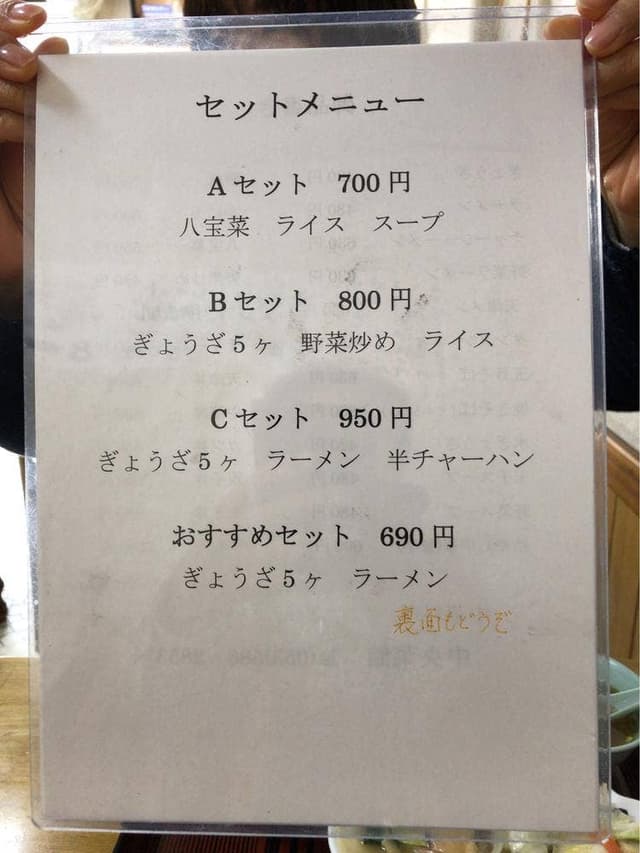 セットメニュー
Aセット 700円
八宝菜 ライス スープ
Bセット 800円
ぎょうざ5ヶ 野菜炒め ライス
Cセット 950円
ぎょうざ5ヶ ラーメン 半チャーハン
おすすめセット 690円
ぎょうざ5ヶ ラーメン
裏面もどうぞ